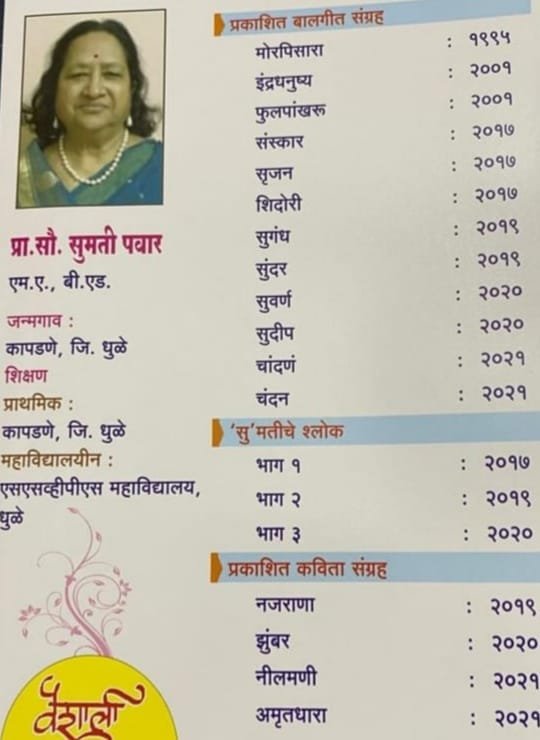 प्रा.सौ. सुमती पवार
एम.ए., बी.एड.
जन्मगाव :
कापडणे, जि. धुळे
शिक्षण
प्राथमिक :
कापडणे, जि. धुळे
महाविद्यालयीन :
एसएसव्हीपीएस महाविद्यालय,
धुळे
वैशाली
प्रकाशित बालगीत संग्रह
मोरपिसारा : १९९५
इंद्रधनुष्य : २००१
फुलपांखरू : २००१
संस्कार : २०१७
सृजन : २०१७
शिदोरी : २०१७
सुगंध : २०१९
सुंदर : २०१९
सुवर्ण : २०२०
सुदीप : २०२०
चांदणं : २०२१
चंदन : २०२१
'सु'मतीचे श्लोक
भाग १ : २०१७
भाग २ : २०१९
भाग ३ : २०२०
प्रकाशित कविता संग्रह
नजराणा : २०१९
झुंबर : २०२०
नीलमणी : २०२१
अमृतधारा : २०२१